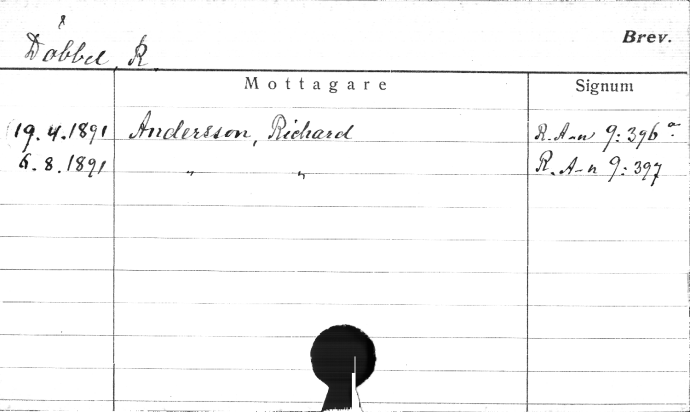 Dobbel, R.
Brev.
Mottagare Signum
19.4.1891 Andersson, Richard R.A-n 9:396 a.
6.8.1891 " " R.A-n 9:397